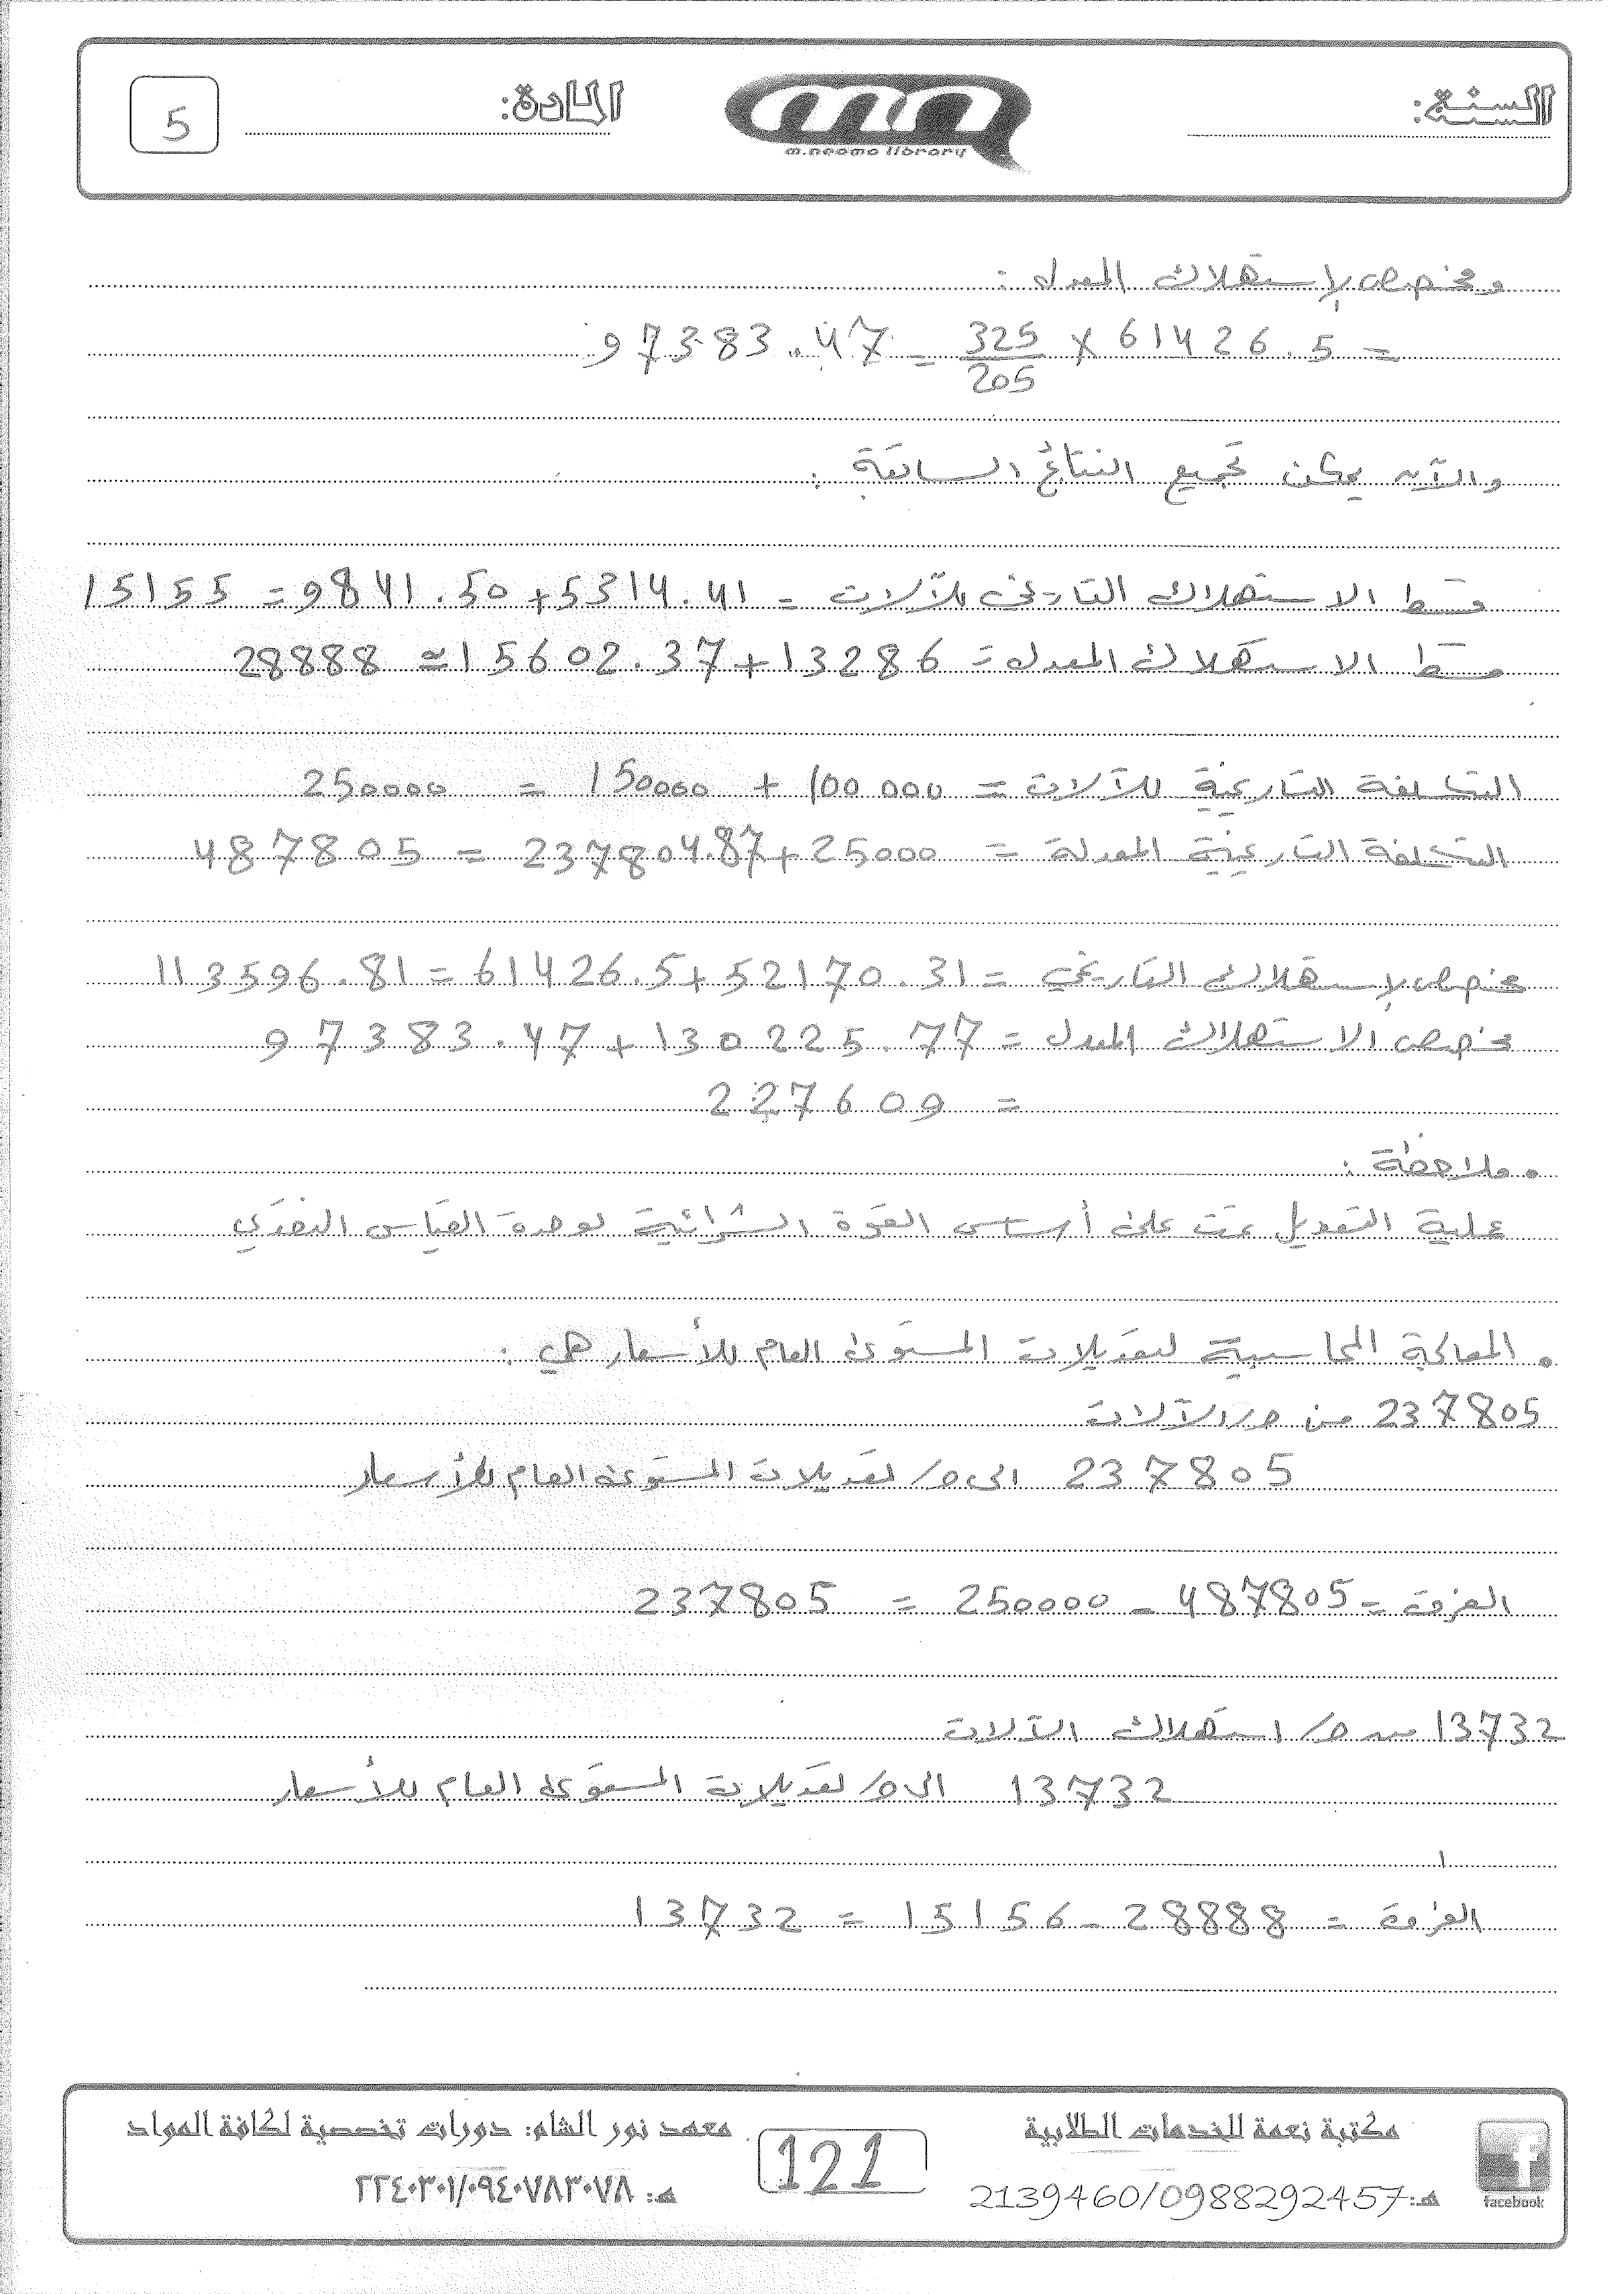 السنة:
المادة:
5
m.neama library
ومخصص الإستهلاك المعدل :
= 61426.5 × 325/205 = 97383.47
والآن يمكن تجميع النتائج السابقة :
قسط الاستهلاك التاريخي للآلات = 5314.41 + 9841.50 = 15155
قسط الاستهلاك المعدل = 13286 + 15602.37 ≃ 28888
التكلفة التاريخية للآلات = 100 000 + 150000 = 250000
التكلفة التاريخية المعدلة = 25000 + 237804.87 = 487805
مخصص الإستهلاك التاريخي = 52170.31 + 61426.5 = 113596.81
مخصص الاستهلاك المعدل = 130225.77 + 97383.47
= 227609
• ملاحظة :
عملية التعديل تمت على أساس القوة الشرائية لوحدة القياس النقدي
• المعالجة المحاسبية لتعديلات المستوى العام للأسعار هي :
237805 من ح/ الآلات
237805 الى ح/ تعديلات المستوى العام للأسعار
الفرق = 487805 - 250000 = 237805
13732 من ح/ استهلاك الآلات
13732 الى ح/ تعديلات المستوى العام للأسعار
الفرق = 28888 - 15156 = 13732
facebook
مكتبة نعمة للخدمات الطلابية
هـ: 2139460/0988292457
121
معهد نور الشام: دورات تخصصية لكافة المواد
هـ: ٢٢٤٠٣٠١/٠٩٤٠٧٨٣٠٧٨